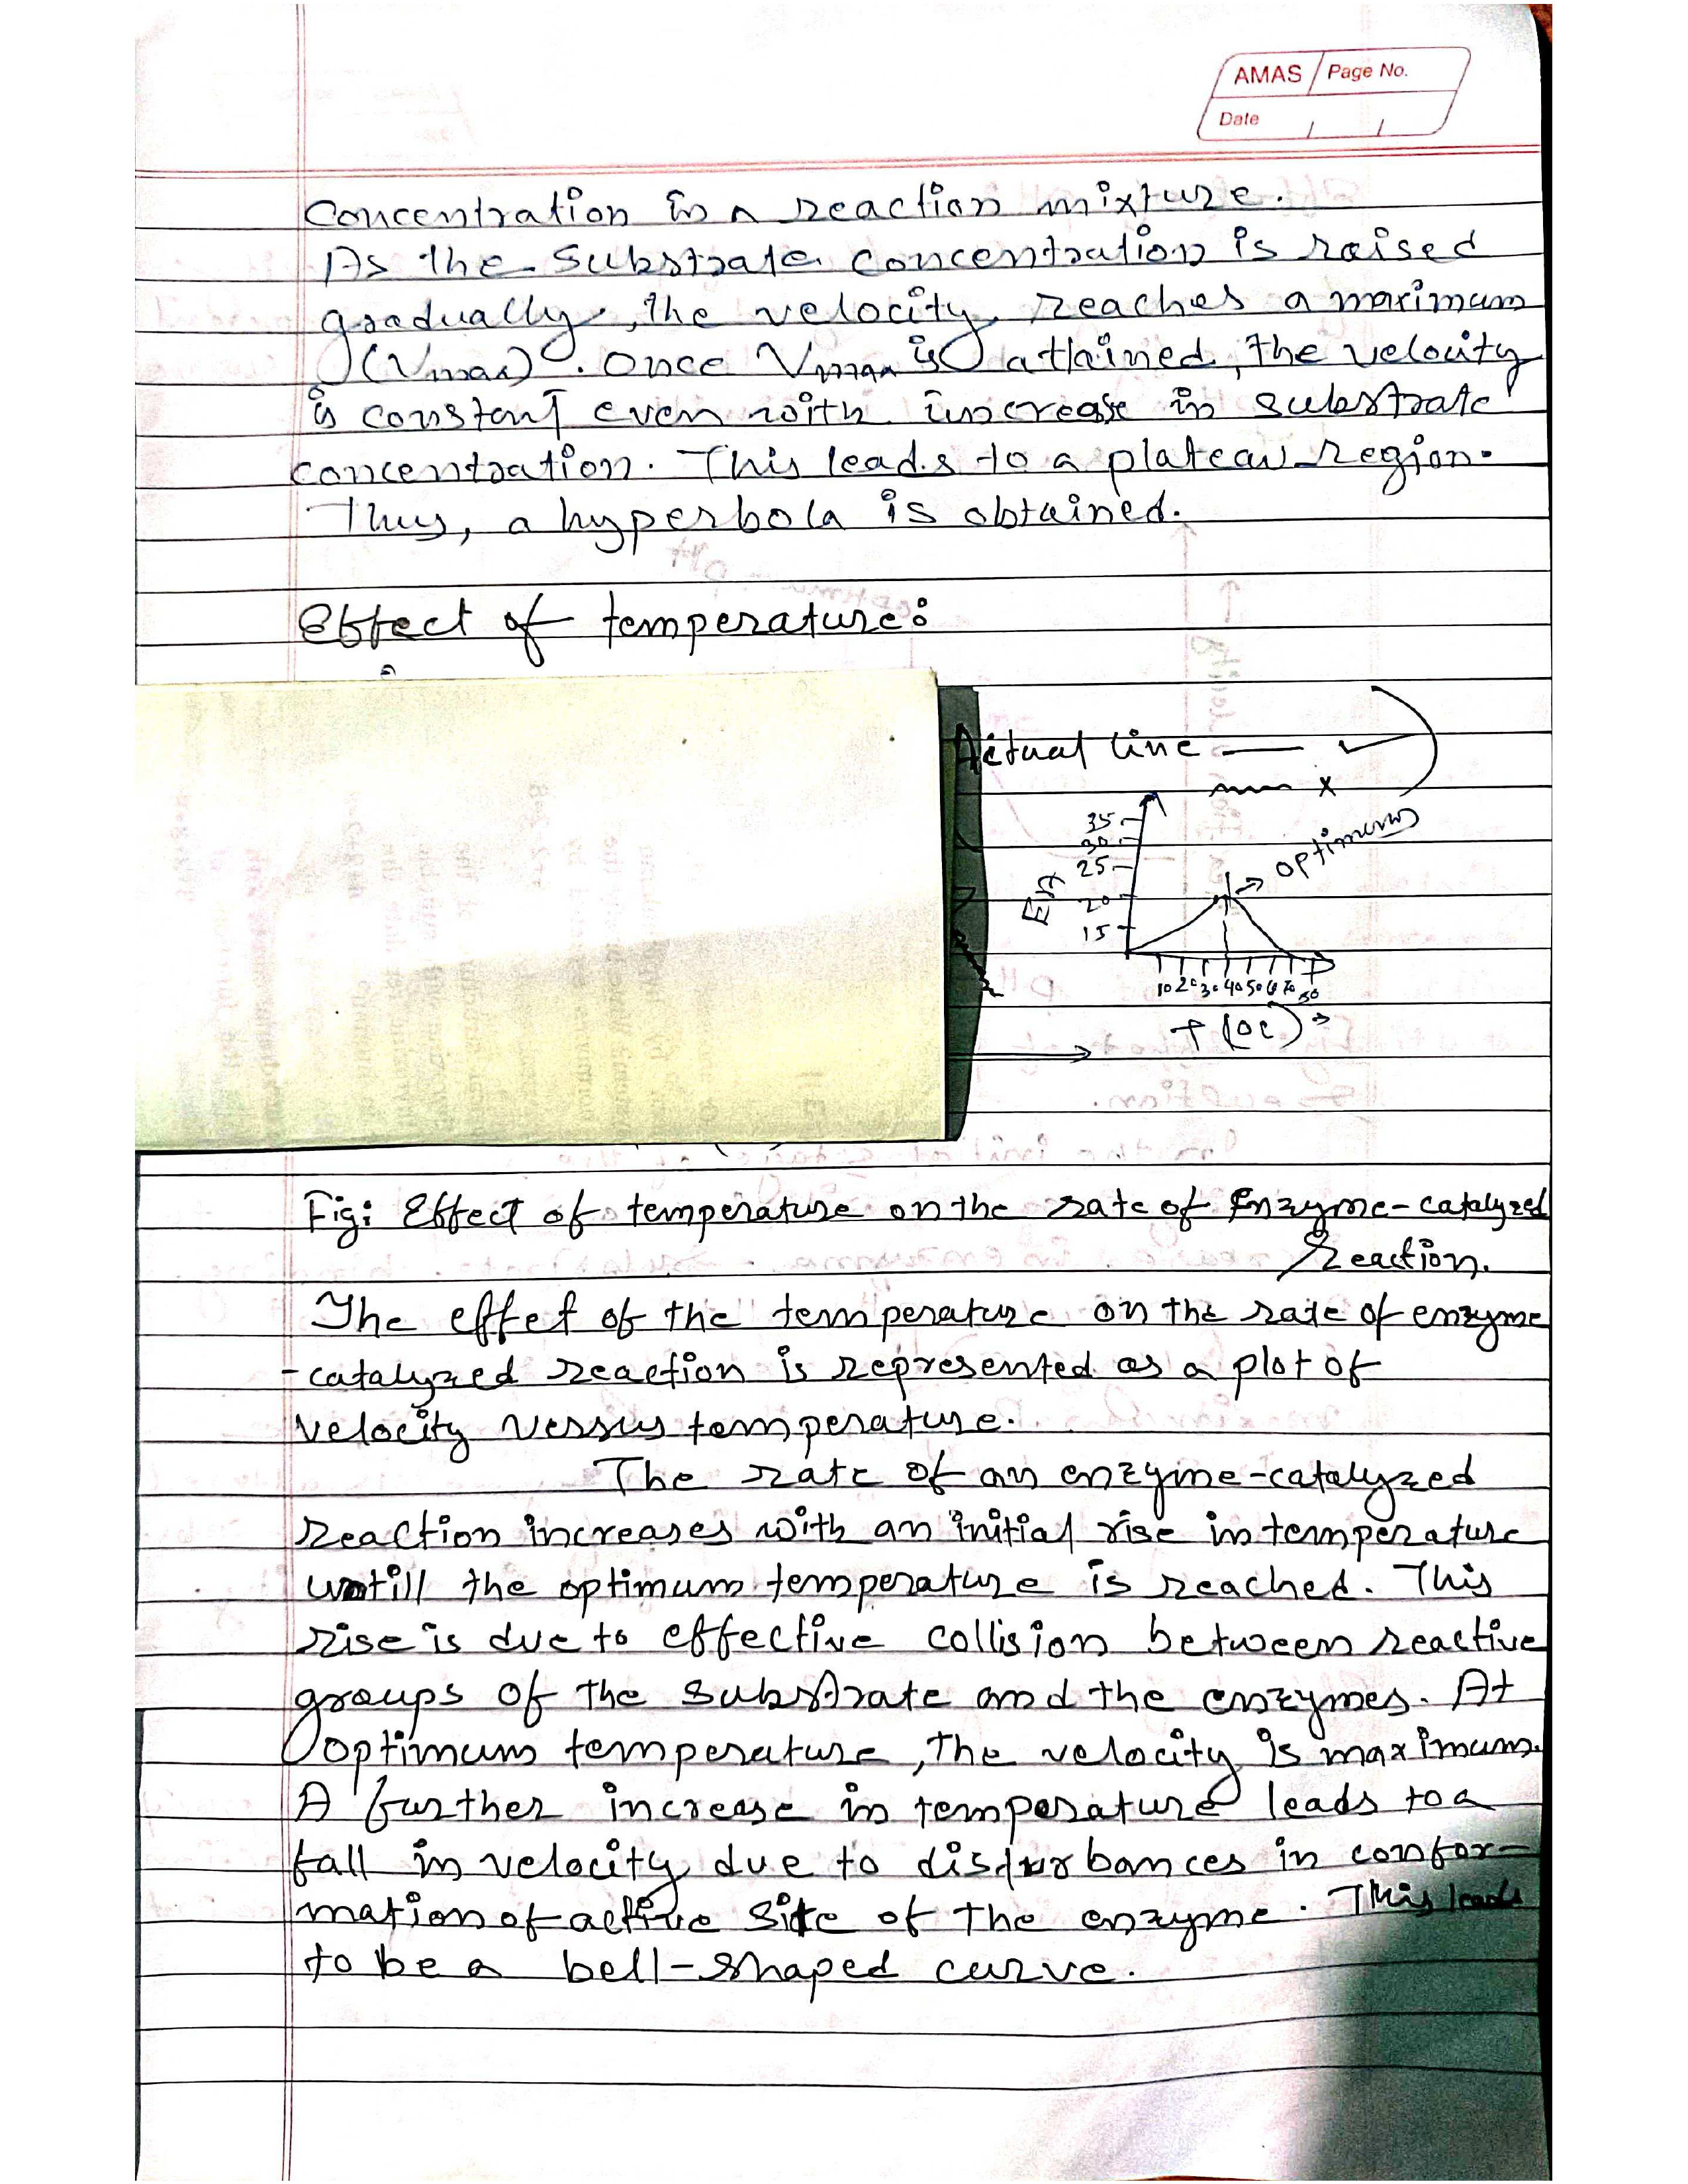 AMAS Page No.
Date / /
Concentration in a reaction mixture.
As the substrate concentration is raised
gradually, the velocity reaches a maximum
(Vmax). Once Vmax is attained, the velocity
is constant even with increase in substrate
concentration. This leads to a plateau region.
Thus, a hyperbola is obtained.
Effect of temperature:
Actual line — ✓
x
35
30
25
20
15
optimum
10 20 30 40 50 60 70 80
Fig: Effect of temperature on the rate of Enzyme-catalyzed
Reaction.
The effet of the temperature on the rate of enzyme
-catalyzed reaction is represented as a plot of
velocity versus temperature.
The rate of an enzyme-catalyzed
reaction increases with an initial rise in temperature
untill the optimum temperature is reached. This
rise is due to effective collision between reactive
groups of the substrate and the enzymes. At
optimum temperature, the velocity is maximum.
A further increase in temperature leads to a
fall in velocity due to disturbances in confor-
mation of active site of the enzyme. This leads
to be a bell-shaped curve.